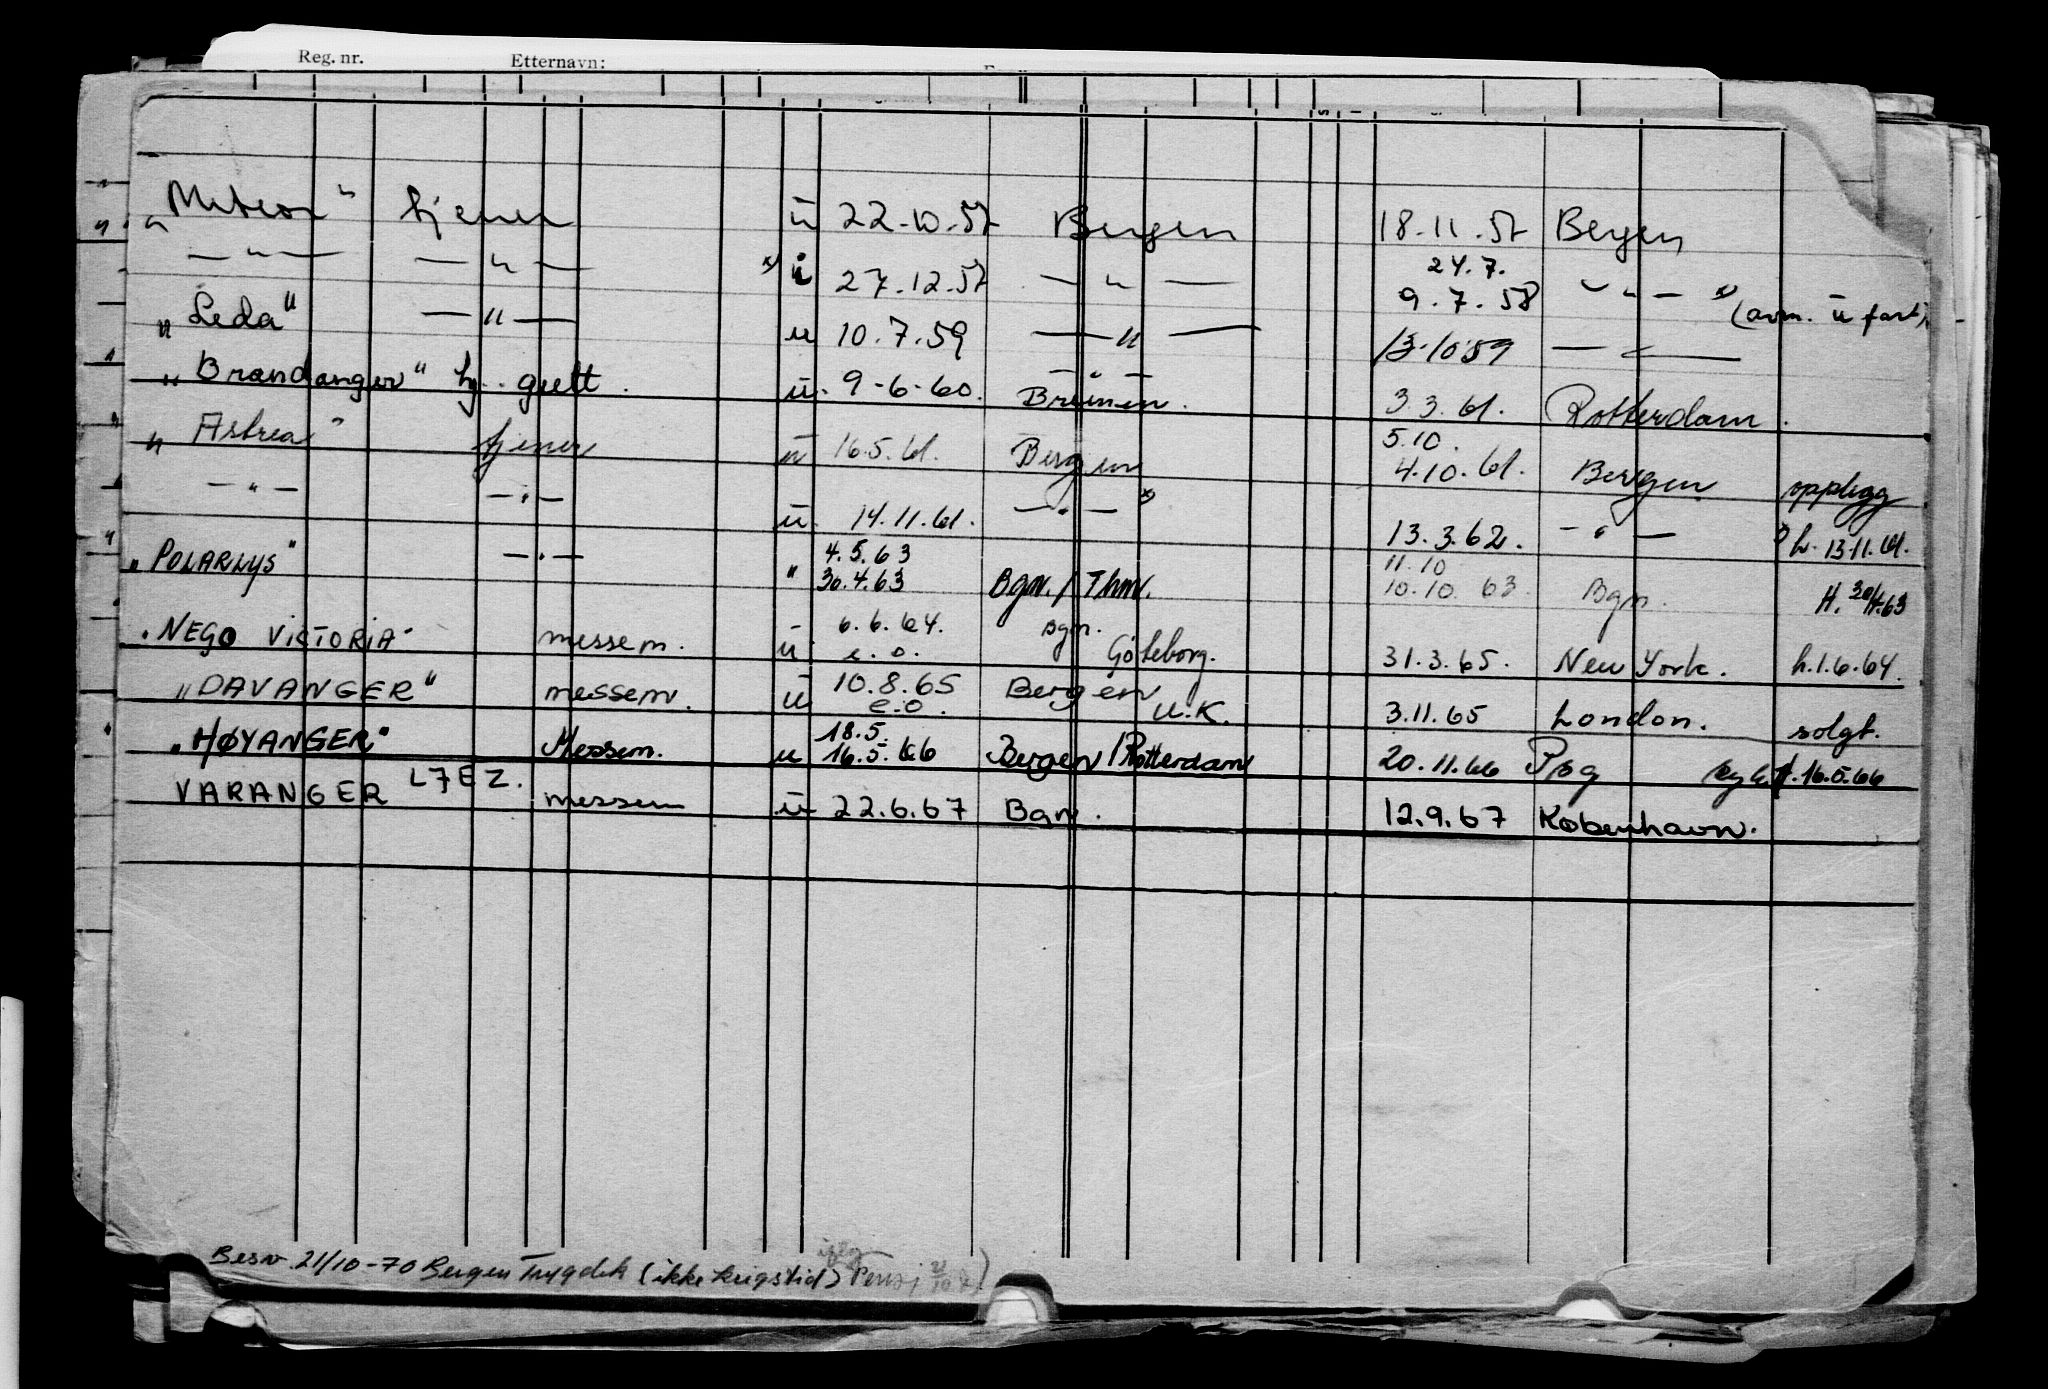 Reg. nr. Etternavn:
„Meteor" tjener ü 22-10-57 Bergen 18-11-57 Bergen
— " — — " — x) ü 27.12.57 — " — 24.7. 9.7.58 — " — x) (avm. ü fart)
„Leda" — " — u 10.7.59 — " — 13.10.59 — " —
„Brandanger" hj. gutt. ü. 9-6-60. — " — Bremen. 3.3.61. Rotterdam.
„Astrea" tjener ü 16.5.61. Bergen 5.10. 4.10.61. Bergen opplegg
— " — — " — ü. 14.11.61. — " — x) 13.3.62. — " — x) h. 13.11.61.
„POLARLYS" — " — " 4.5.63 30.4.63 Bgn. / Thm. 11.10 10.10.63. Bgn. H. 30/4.63
„NEGO VICTORIA" messem. ü 6.6.64. e.o. Bgn. Göteborg. 31.3.65. New York. h.1.6.64.
„DAVANGER" messem. ü 10.8.65 e.o. Bergen U.K. 3.11.65 London. solgt.
„HØYANGER" Messem. u 18.5. 16.5.66 Bergen / Rotterdam 20.11.66 H. 16.5.66
VARANGER LFEZ. messem ü 22.6.67 Bgn. 12.9.67 København.
Besv. 21/10-70 Bergen Trygdek (ikke krigstid) iflg Pensj